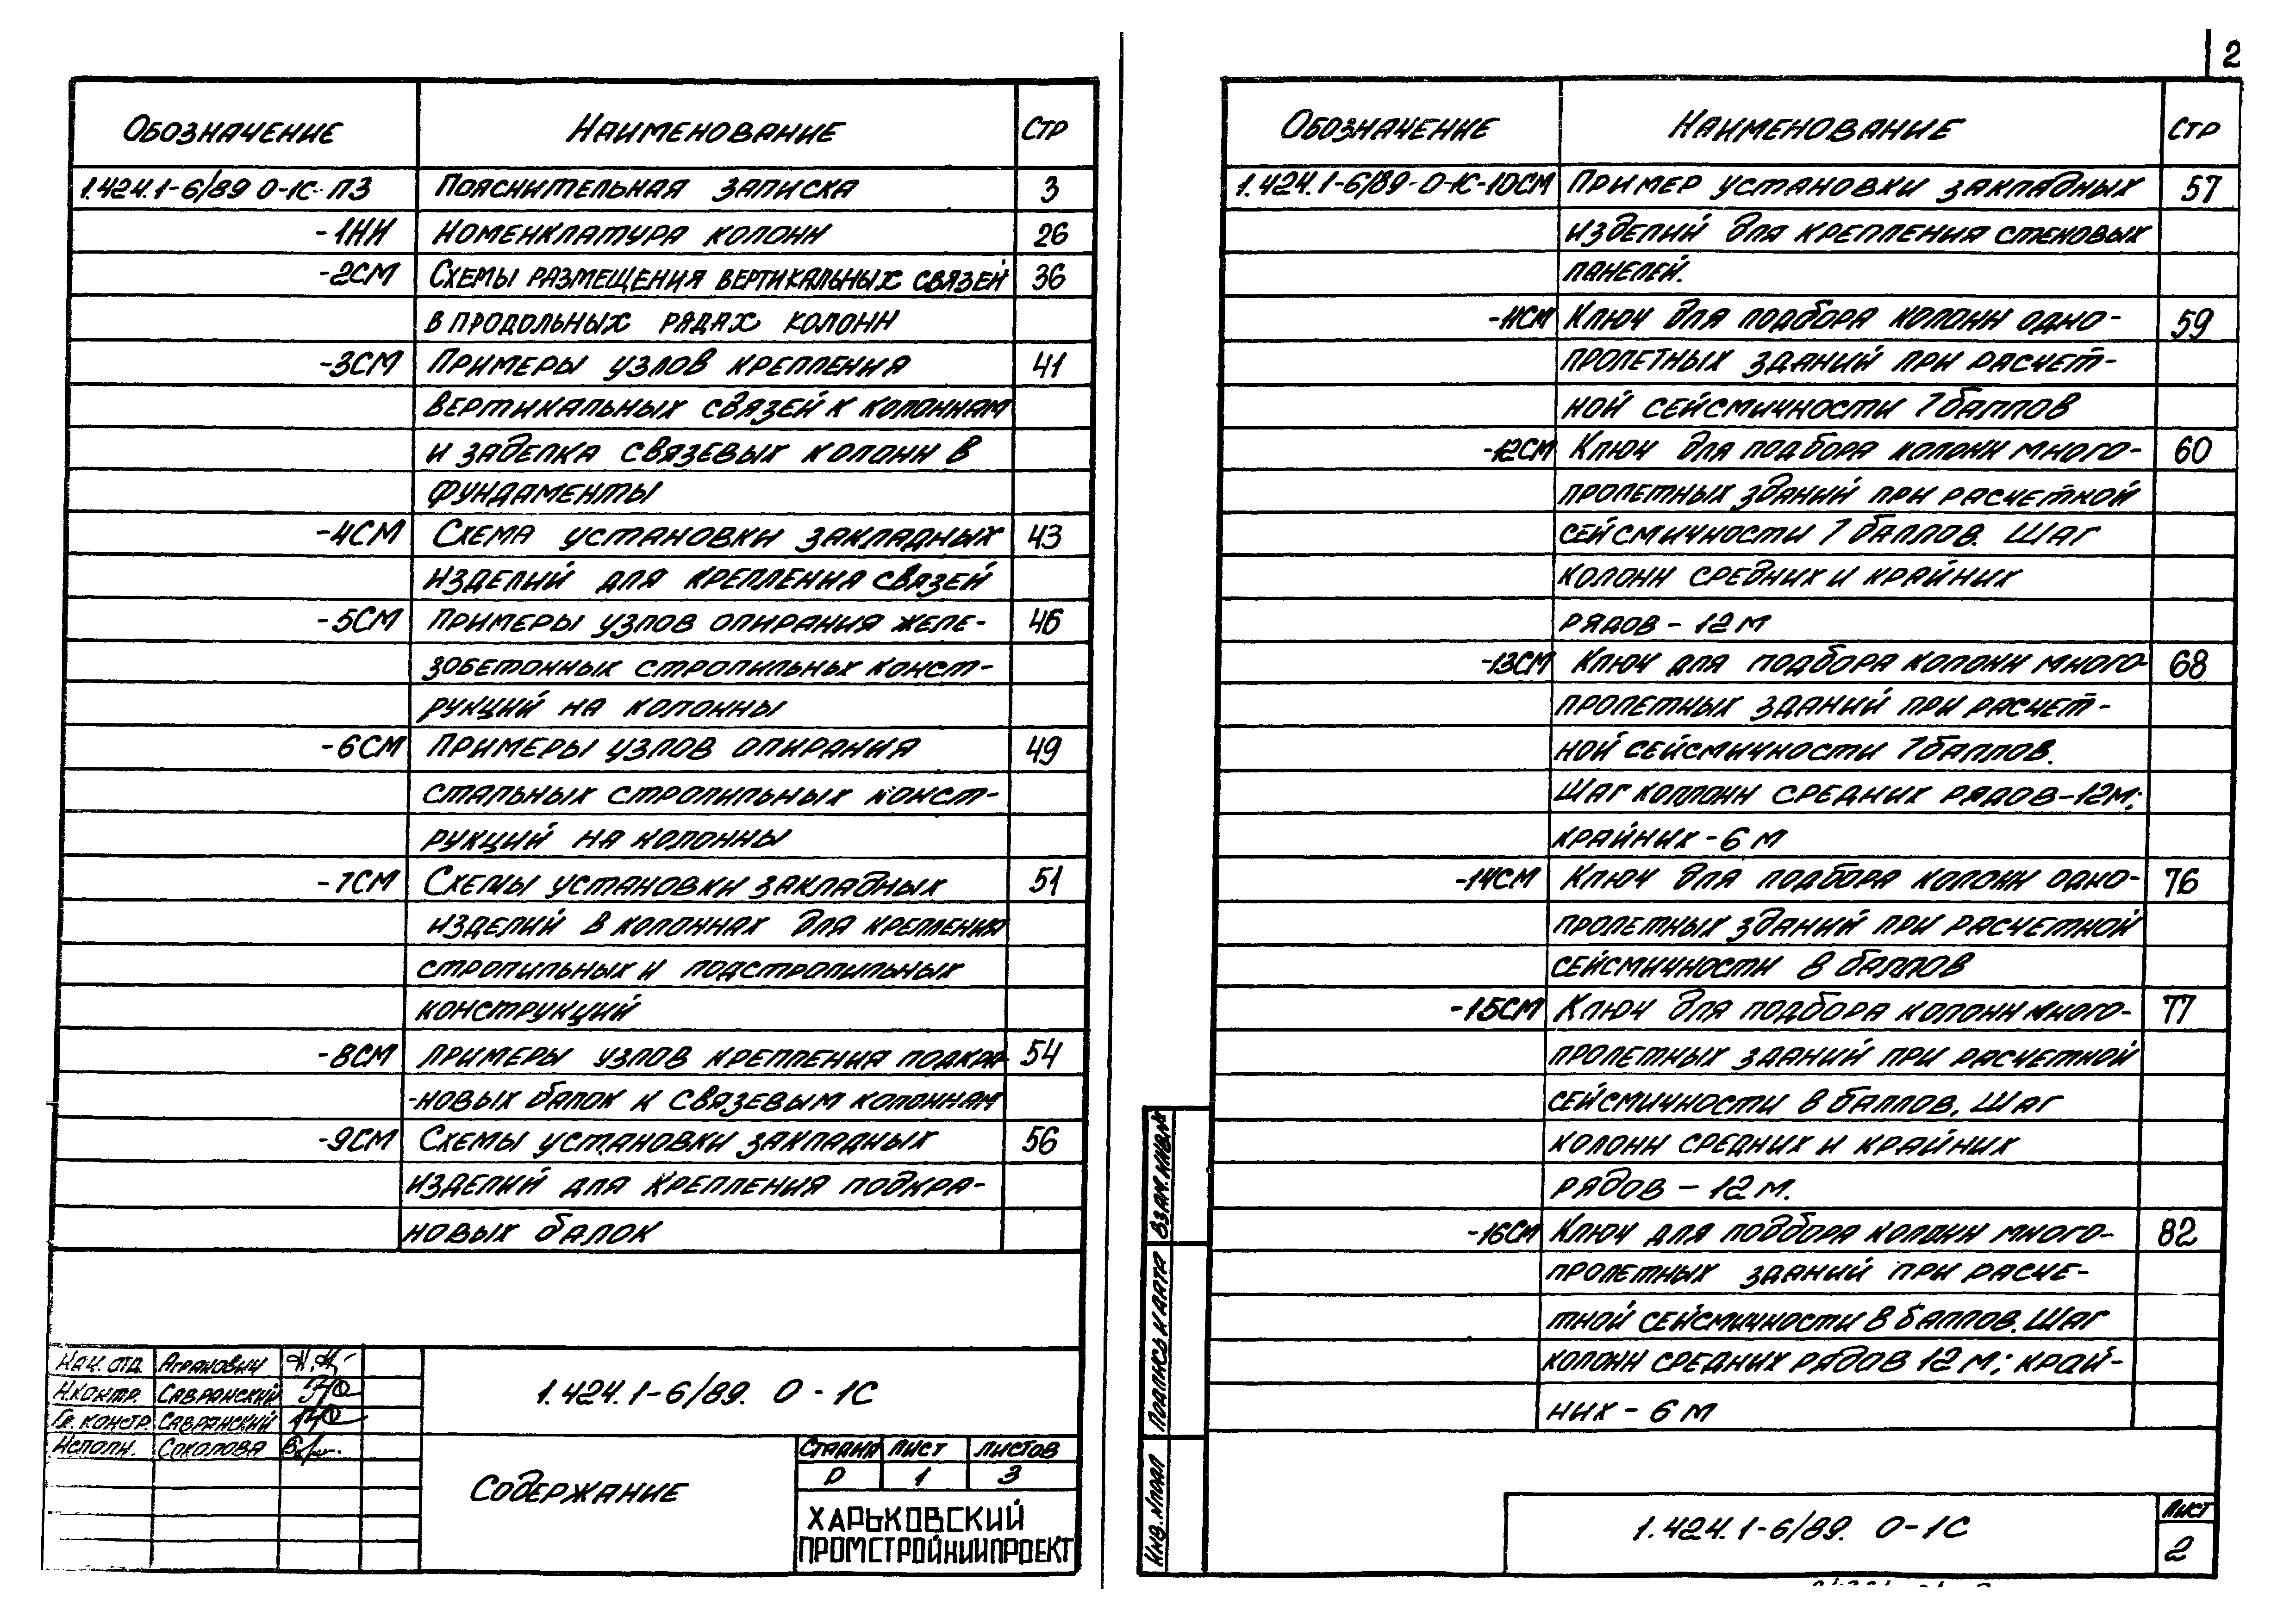 2
Обозначение Наименование Стр
1.424.1-6/89 0-1С ПЗ Пояснительная записка 3
-1НИ Номенклатура колонн 26
-2СМ Схемы размещения вертикальных связей 36
в продольных рядах колонн
-3СМ Примеры узлов крепления 41
вертикальных связей к колоннам
и заделка связевых колонн в
фундаменты
-4СМ Схема установки закладных 43
изделий для крепления связей
-5СМ Примеры узлов опирания желе- 46
зобетонных стропильных конст-
рукций на колонны
-6СМ Примеры узлов опирания 49
стальных стропильных конст-
рукций на колонны
-7СМ Схемы установки закладных 51
изделий в колоннах для крепления
стропильных и подстропильных
конструкций
-8СМ Примеры узлов крепления подкра- 54
-новых балок к связевым колоннам
-9СМ Схемы установки закладных 56
изделий для крепления подкра-
новых балок
Нач. отд. Агранович
Н.контр. Савранский
Гл. констр. Савранский
Исполн. Соколова
1.424.1-6/89. 0-1С
Содержание
Стадия Лист Листов
Р 1 3
ХАРЬКОВСКИЙ
ПРОМСТРОЙНИИПРОЕКТ
Обозначение Наименование Стр
1.424.1-6/89-0-1С-10СМ Пример установки закладных 57
изделий для крепления стеновых
панелей.
-11СМ Ключ для подбора колонн одно- 59
пролетных зданий при расчет-
ной сейсмичности 7 баллов
-12СМ Ключ для подбора колонн много- 60
пролетных зданий при расчетной
сейсмичности 7 баллов. Шаг
колонн средних и крайних
рядов - 12 м
-13СМ Ключ для подбора колонн много- 68
пролетных зданий при расчет-
ной сейсмичности 7 баллов.
Шаг колонн средних рядов-12м;
крайних - 6 м
-14СМ Ключ для подбора колонн одно- 76
пролетных зданий при расчетной
сейсмичности 8 баллов
-15СМ Ключ для подбора колонн много- 77
пролетных зданий при расчетной
сейсмичности 8 баллов. Шаг
колонн средних и крайних
рядов - 12 м.
-16СМ Ключ для подбора колонн много- 82
пролетных зданий при расче-
тной сейсмичности 8 баллов. Шаг
колонн средних рядов 12 м; край-
них - 6 м
Взам. инв.№
Подпись и дата
Инв.№ подл
1.424.1-6/89. 0-1С
Лист
2